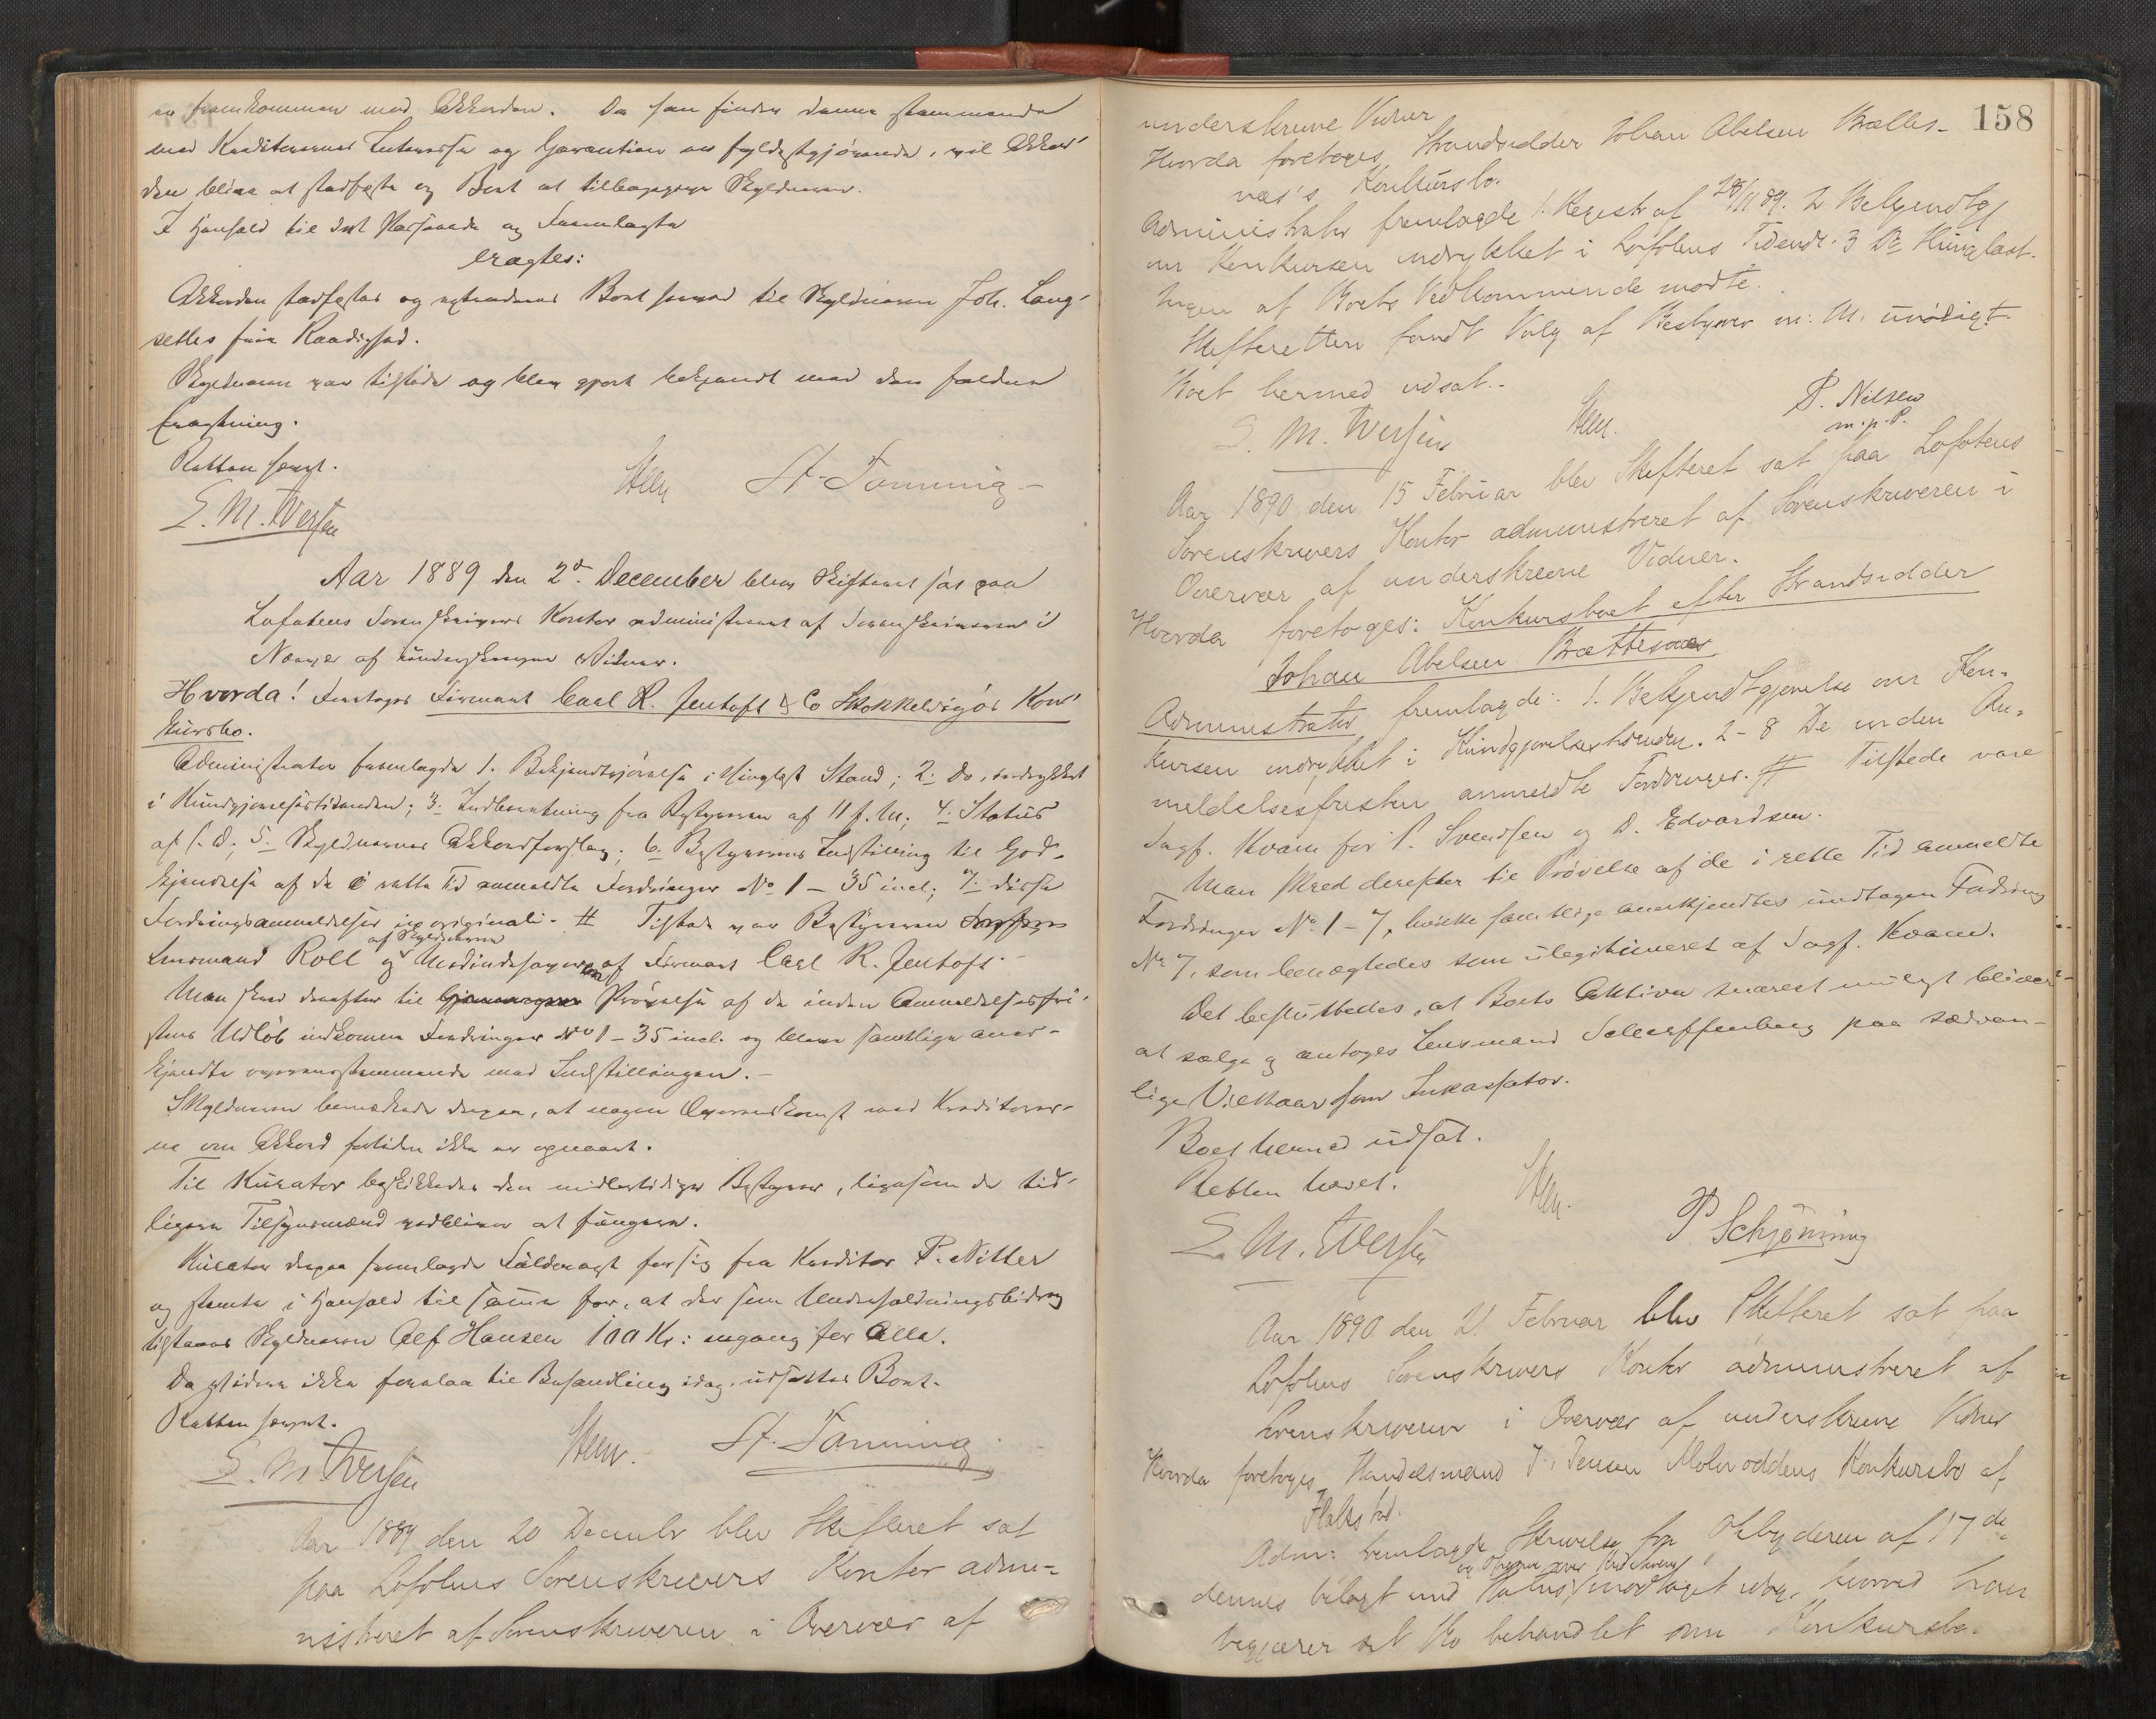 er fremkommen med Akkorden. Da han finder denne stemmende
med Kreditorernes Interesse og Garantien er fyldestgjørende, vil Akkor-
den blive at stadfæste og Boet at tilbagegive Skyldneren.
I Henhold til det Passerede og Fremlagte
eragtes:
Akkorden stadfæstes og extraderes Boet herved til Skyldneren Joh. Lang-
sethes frie Raadighed.
Skyldneren var tilstede og blev gjort bekjendt med den faldne
Eragtning.
Retten hævet.
E. M. Iversen Steen St. Tønning
Aar 1889 den 2d December blev Skifteret sat paa
Lofotens Sorenskrivers Kontor administreret af Sorenskriveren i
Nærvær af underskrevne Vidner.
Hvorda! foretoges Firmaet Carl R. Jentoft & Co Stokkelvigs Kon-
kursbo.
Administrator fremlagde 1. Bekjendtgjørelse i thinglæst Stand; 2. Do. indrykket
i Kundgjørelsestidenden; 3. Indberetning fra Bestyreren af 11 f. M; 4. Status
af s. D; 5. Skyldnernes Akkordforslag; 6. Bestyrerens Indstilling til God-
kjendelse af de i rette Tid anmeldte Fordringer No 1 – 35 incl; 7. disse
Fordringsanmeldelser in originali. # Tilstede var Bestyreren
Lensmand Roll og af Skyldnerne Medindehaveren af Firmaet Carl R. Jentoft.
Man skred derefter til Prøvelse af de inden Anmeldelsesfri-
stens Udløb indkomne Fordringer No 1 – 35 incl. og bleve samtlige aner-
kjendte overensstemmende med Indstillingen.
Skyldneren bemærkede derpaa, at nogen Overenskomst med Kreditorer-
ne om Akkord fortiden ikke er opnaaet.
Til Kurator beskikkedes den midlertidige Bestyrer, ligesom de tid-
ligere Tilsynsmænd vedbliver at fungere.
Kurator derpaa fremlagde Fuldmagt for sig fra Kreditor P. Nitter
og stemte i Henhold til samme for, at der som Underholdningsbidrag
tilstaaes Skyldneren Alf Hansen 100 Kr: engang for Alle.
Da videre ikke forelaa til Behandling idag, udsattes Boet.
Retten hævet.
E. M. Iversen Steen. St. Tønning
Aar 1889 den 20 Decembr blev Skifteret sat
paa Lofotens Sorenskrivers Kontor admi-
nistreret af Sorenskriveren i Overvær af
158
underskrevne Vidner
Hvorda foretoges Strandsidder Johan Abelsen Brættes-
næs's Konkursbo.
Administrator fremlagde 1. Registr af 28/11 89. 2 Bekjendtg
om Konkursen indrykket i Lofotens Tidende. 3 Do thinglæst.
Ingen af Boets Vedkommende mødte.
Skifteretten fandt Valg af Bestyrer m. M. unødigt
Boet hermed udsat.
E. M. Iversen Steen. P. Nilsen
m. p. P.
Aar 1890 den 15 Februar blev Skifteret sat paa Lofotens
Sorenskrivers Kontor administreret af Sorenskriveren i
Overvær af underskrevne Vidner.
Hvorda foretoges: Konkursboet efter Strandsidder
Johan Abelsen Brættesnæs
Administrator fremlagde: 1. Bekjendtgjørelse om Kon-
kursen indrykket i Kundgjørelsestidenden. 2 – 8 De inden An-
meldelsesfristen anmeldte Fordringer. # Tilstede vare
Sagf. Kvam for P. Svendsen og D. Edvardsen.
Man skred derefter til Prøvelse af de i rette Tid anmeldte
Fordringer No 1 – 7, hvilke samtlige anerkjendtes undtagen Fordring
No 7, som benægtedes som ulegitimeret af Sagf. Kvam.
Det besluttedes, at Boets Aktiva snarest muligt bliver
at sælge og antoges Lensmand Scharffenberg paa sædvan-
lige Vilkaar som Inkassator.
Boet hermed udsat.
Retten hævet. Steen.
E. M. Iversen P Schjønning
Aar 1890 den 21. Februar blev Skifteret sat paa
Lofotens Sorenskrivers Kontor administreret af
Sorenskriveren i Overvær af underskrevne Vidner
Hvorda foretoges Handelsmand J. Jensen Molvoddens Konkursbo af
Flakstad.
Adm: fremlagde Skrivelse fra Opbyderen af 17de
dennes bilagt med Status modtaget idag, hvorved han
begjærer sit Bo behandlet som Konkursbo.